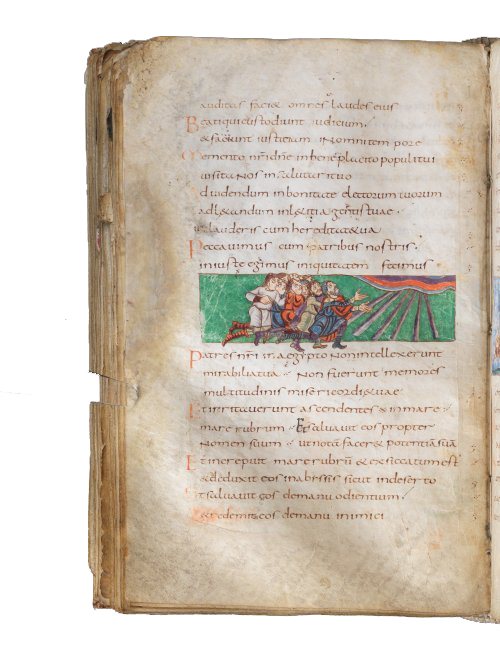 auditas faciet omnes laudes eius
Beati qui custodiunt iudicium·
& faciunt iustitiam Inomni tempore
Memento nr̄i dn̄e inbeneplacito populi tui
uisita nos insalutari tuo
Aduidendum inbonitate electorum tuorum
adlaetandum inlaetitia gentis tuae·
utlauderis cum hereditate tua
Peccauimus cum patribus nostris·
iniuste egimus iniquitatem fecimus
Patres nr̄i in aegypto nonintellexerunt
mirabilia tua Non fuerunt memores
multitudinis misericordiae tuae
Et irritauerunt ascendentes inmare
mare rubrum Et saluauit eos propter
nomen suum ut nota faceret potentiā suā
Et increpuit mare rubrū & exsiccatum est
& deduxit eos in abissis sicut in deserto
Et saluauit eos demanu odientium·
& redemit eos demanu inimici